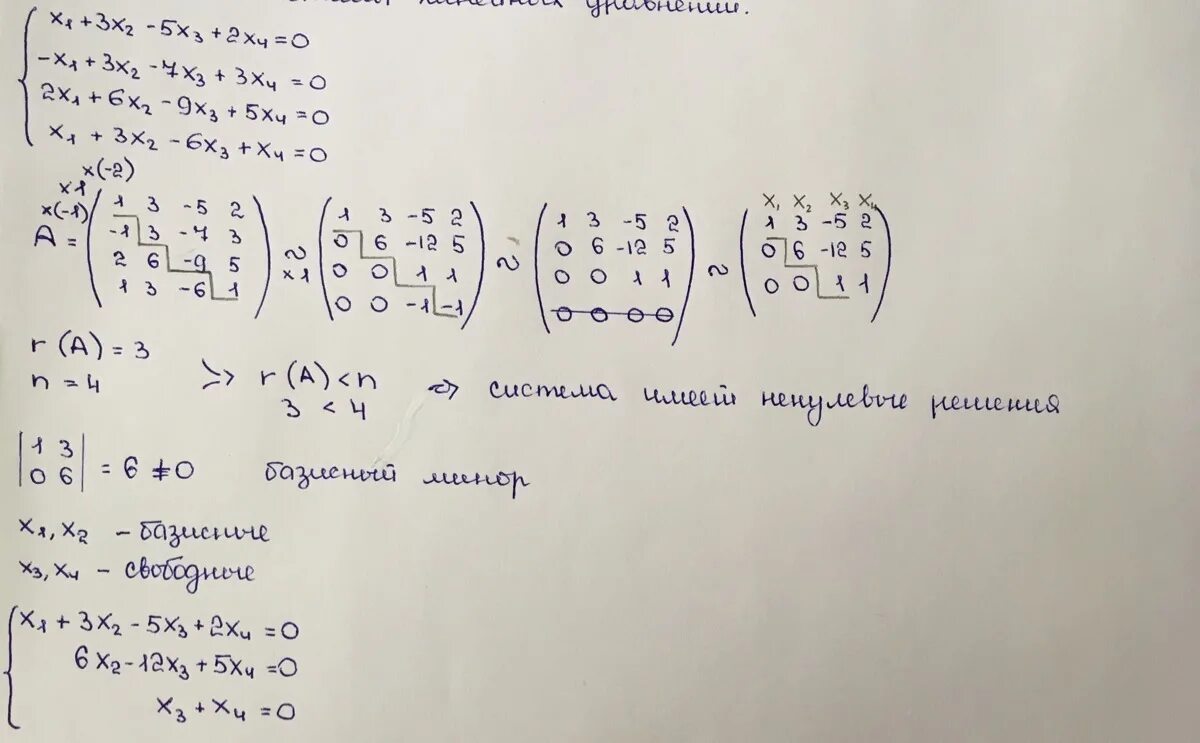 уравнений.
x₁ + 3x₂ - 5x₃ + 2x₄ = 0
-x₁ + 3x₂ - 7x₃ + 3x₄ = 0
2x₁ + 6x₂ - 9x₃ + 5x₄ = 0
x₁ + 3x₂ - 6x₃ + x₄ = 0
x(-2)
x1
x(-1)
A = (1 3 -5 2; -1 3 -7 3; 2 6 -9 5; 1 3 -6 1) ~ x1 (1 3 -5 2; 0 6 -12 5; 0 0 1 1; 0 0 -1 -1) ~ (1 3 -5 2; 0 6 -12 5; 0 0 1 1; 0 0 0 0) ~ (x₁ x₂ x₃ x₄; 1 3 -5 2; 0 6 -12 5; 0 0 1 1)
r(A) = 3
n = 4 => r(A) < n => система имеет ненулевые решения
3 < 4
|1 3; 0 6| = 6 ≠ 0 базисный минор
x₁, x₂ - базисные
x₃, x₄ - свободные
x₁ + 3x₂ - 5x₃ + 2x₄ = 0
6x₂ - 12x₃ + 5x₄ = 0
x₃ + x₄ = 0